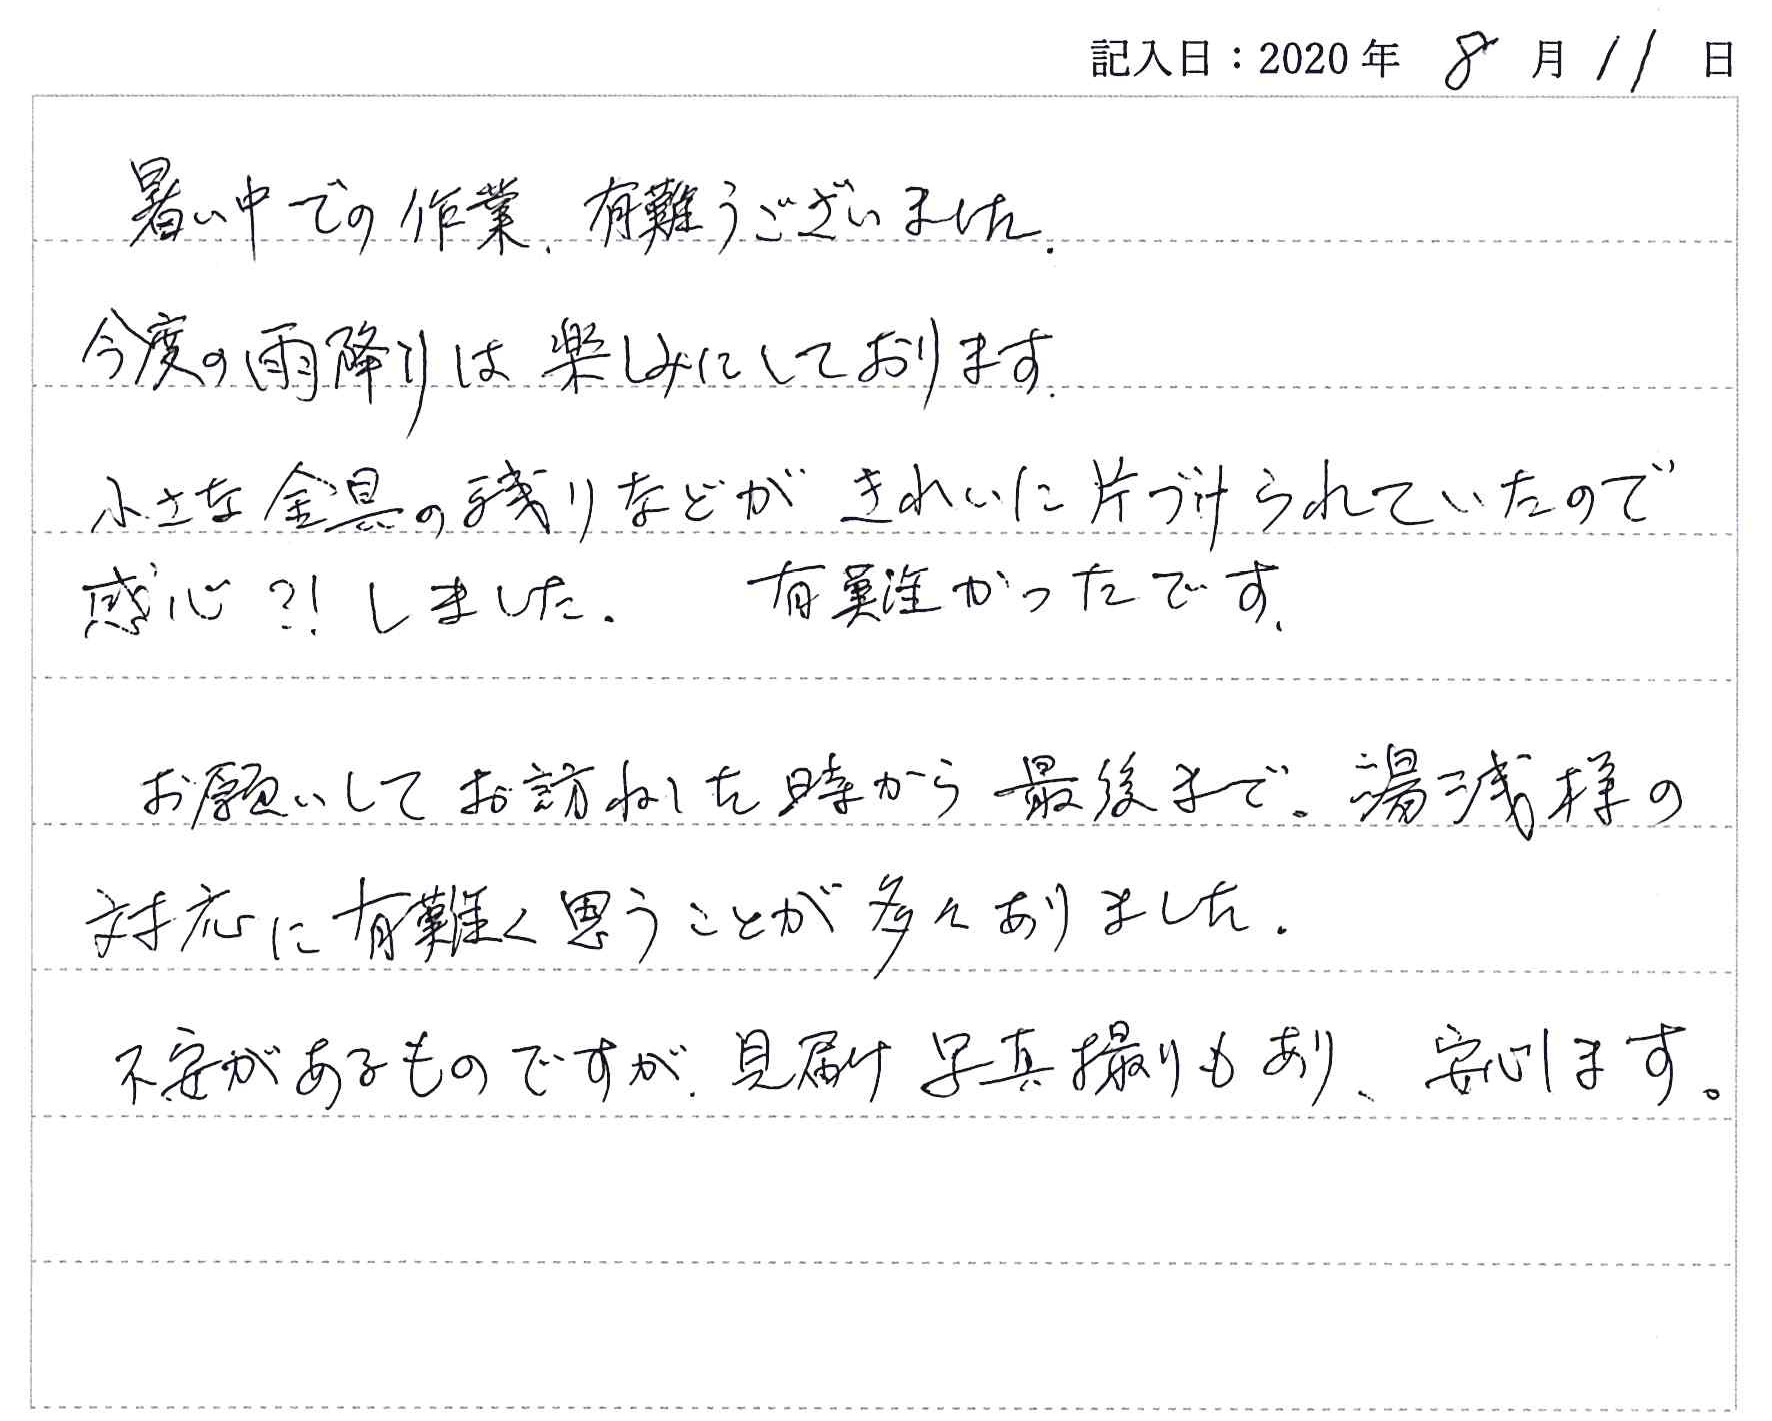 記入日：2020年 8月11日
暑い中での作業、有難うございました。
今度の雨降りは楽しみにしております。
小さな金具の残りなどがきれいに片づけられていたので
感心?!しました。 有難かったです。
お願いしてお訪ねした時から最後まで。湯浅様の
対応に有難く思うことが多々ありました。
不安があるものですが、見届け写真撮りもあり、安心します。